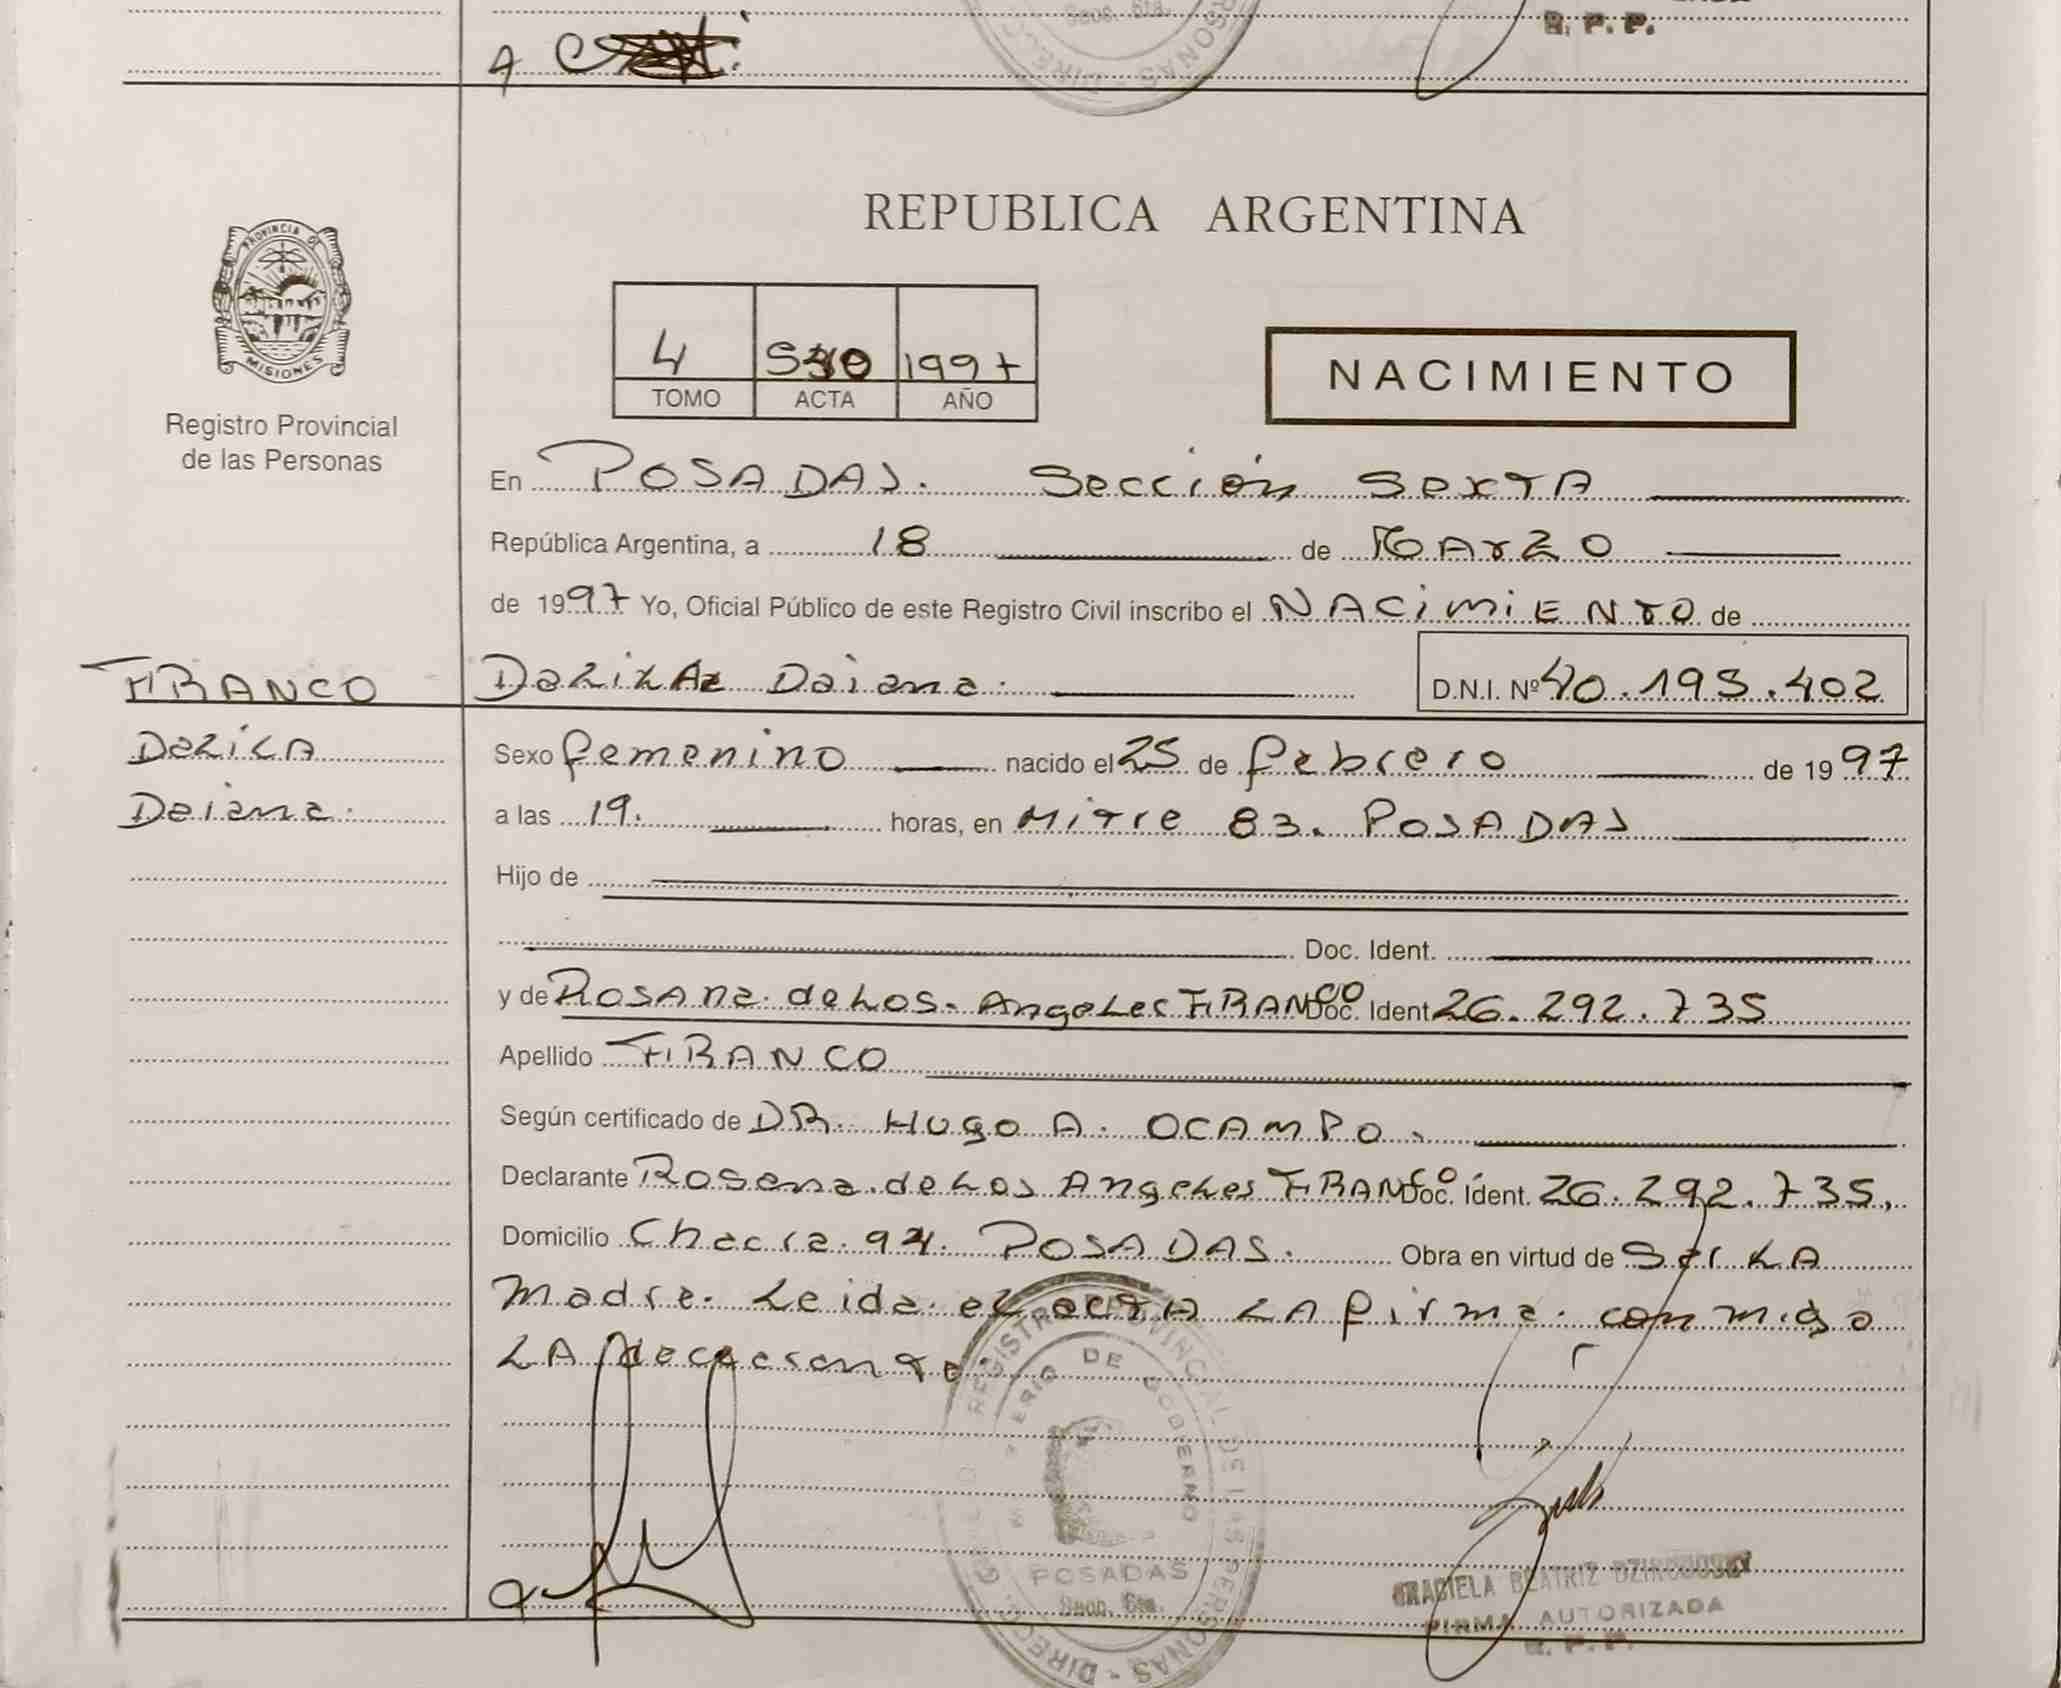 Secc. 6ta.
R. P. P.
PROVINCIA DE MISIONES
Registro Provincial
de las Personas
REPUBLICA ARGENTINA
4 1997
TOMO ACTA AÑO
NACIMIENTO
En POSADAS. Sección Sexta
República Argentina, a 18 de Marzo
de 1997 Yo, Oficial Público de este Registro Civil inscribo el NACIMIENTO de
FRANCO
Dalila Daiana. D.N.I. Nº 40.195.402
Dalila
Daiana.
Sexo femenino nacido el 25 de febrero de 1997
a las 19. horas, en Mitre 83. POSADAS
Hijo de
Doc. Ident.
y de Rosana de Los Angeles FRANCO Doc. Ident 26.292.735
Apellido FRANCO
Según certificado de DR. HUGO A. OCAMPO.
Declarante Rosana de Los Angeles FRANCO Doc. Ident. 26.292.735,
Domicilio Chacra 94. POSADAS. Obra en virtud de Ser LA
Madre. Leida el acta LA firma conmigo
LA declarante.
REGISTRO PROVINCIAL DE LAS PERSONAS
DE GOBIERNO
POSADAS
Secc. 6ta.
GRACIELA BEATRIZ
FIRMA AUTORIZADA
R. P. P.